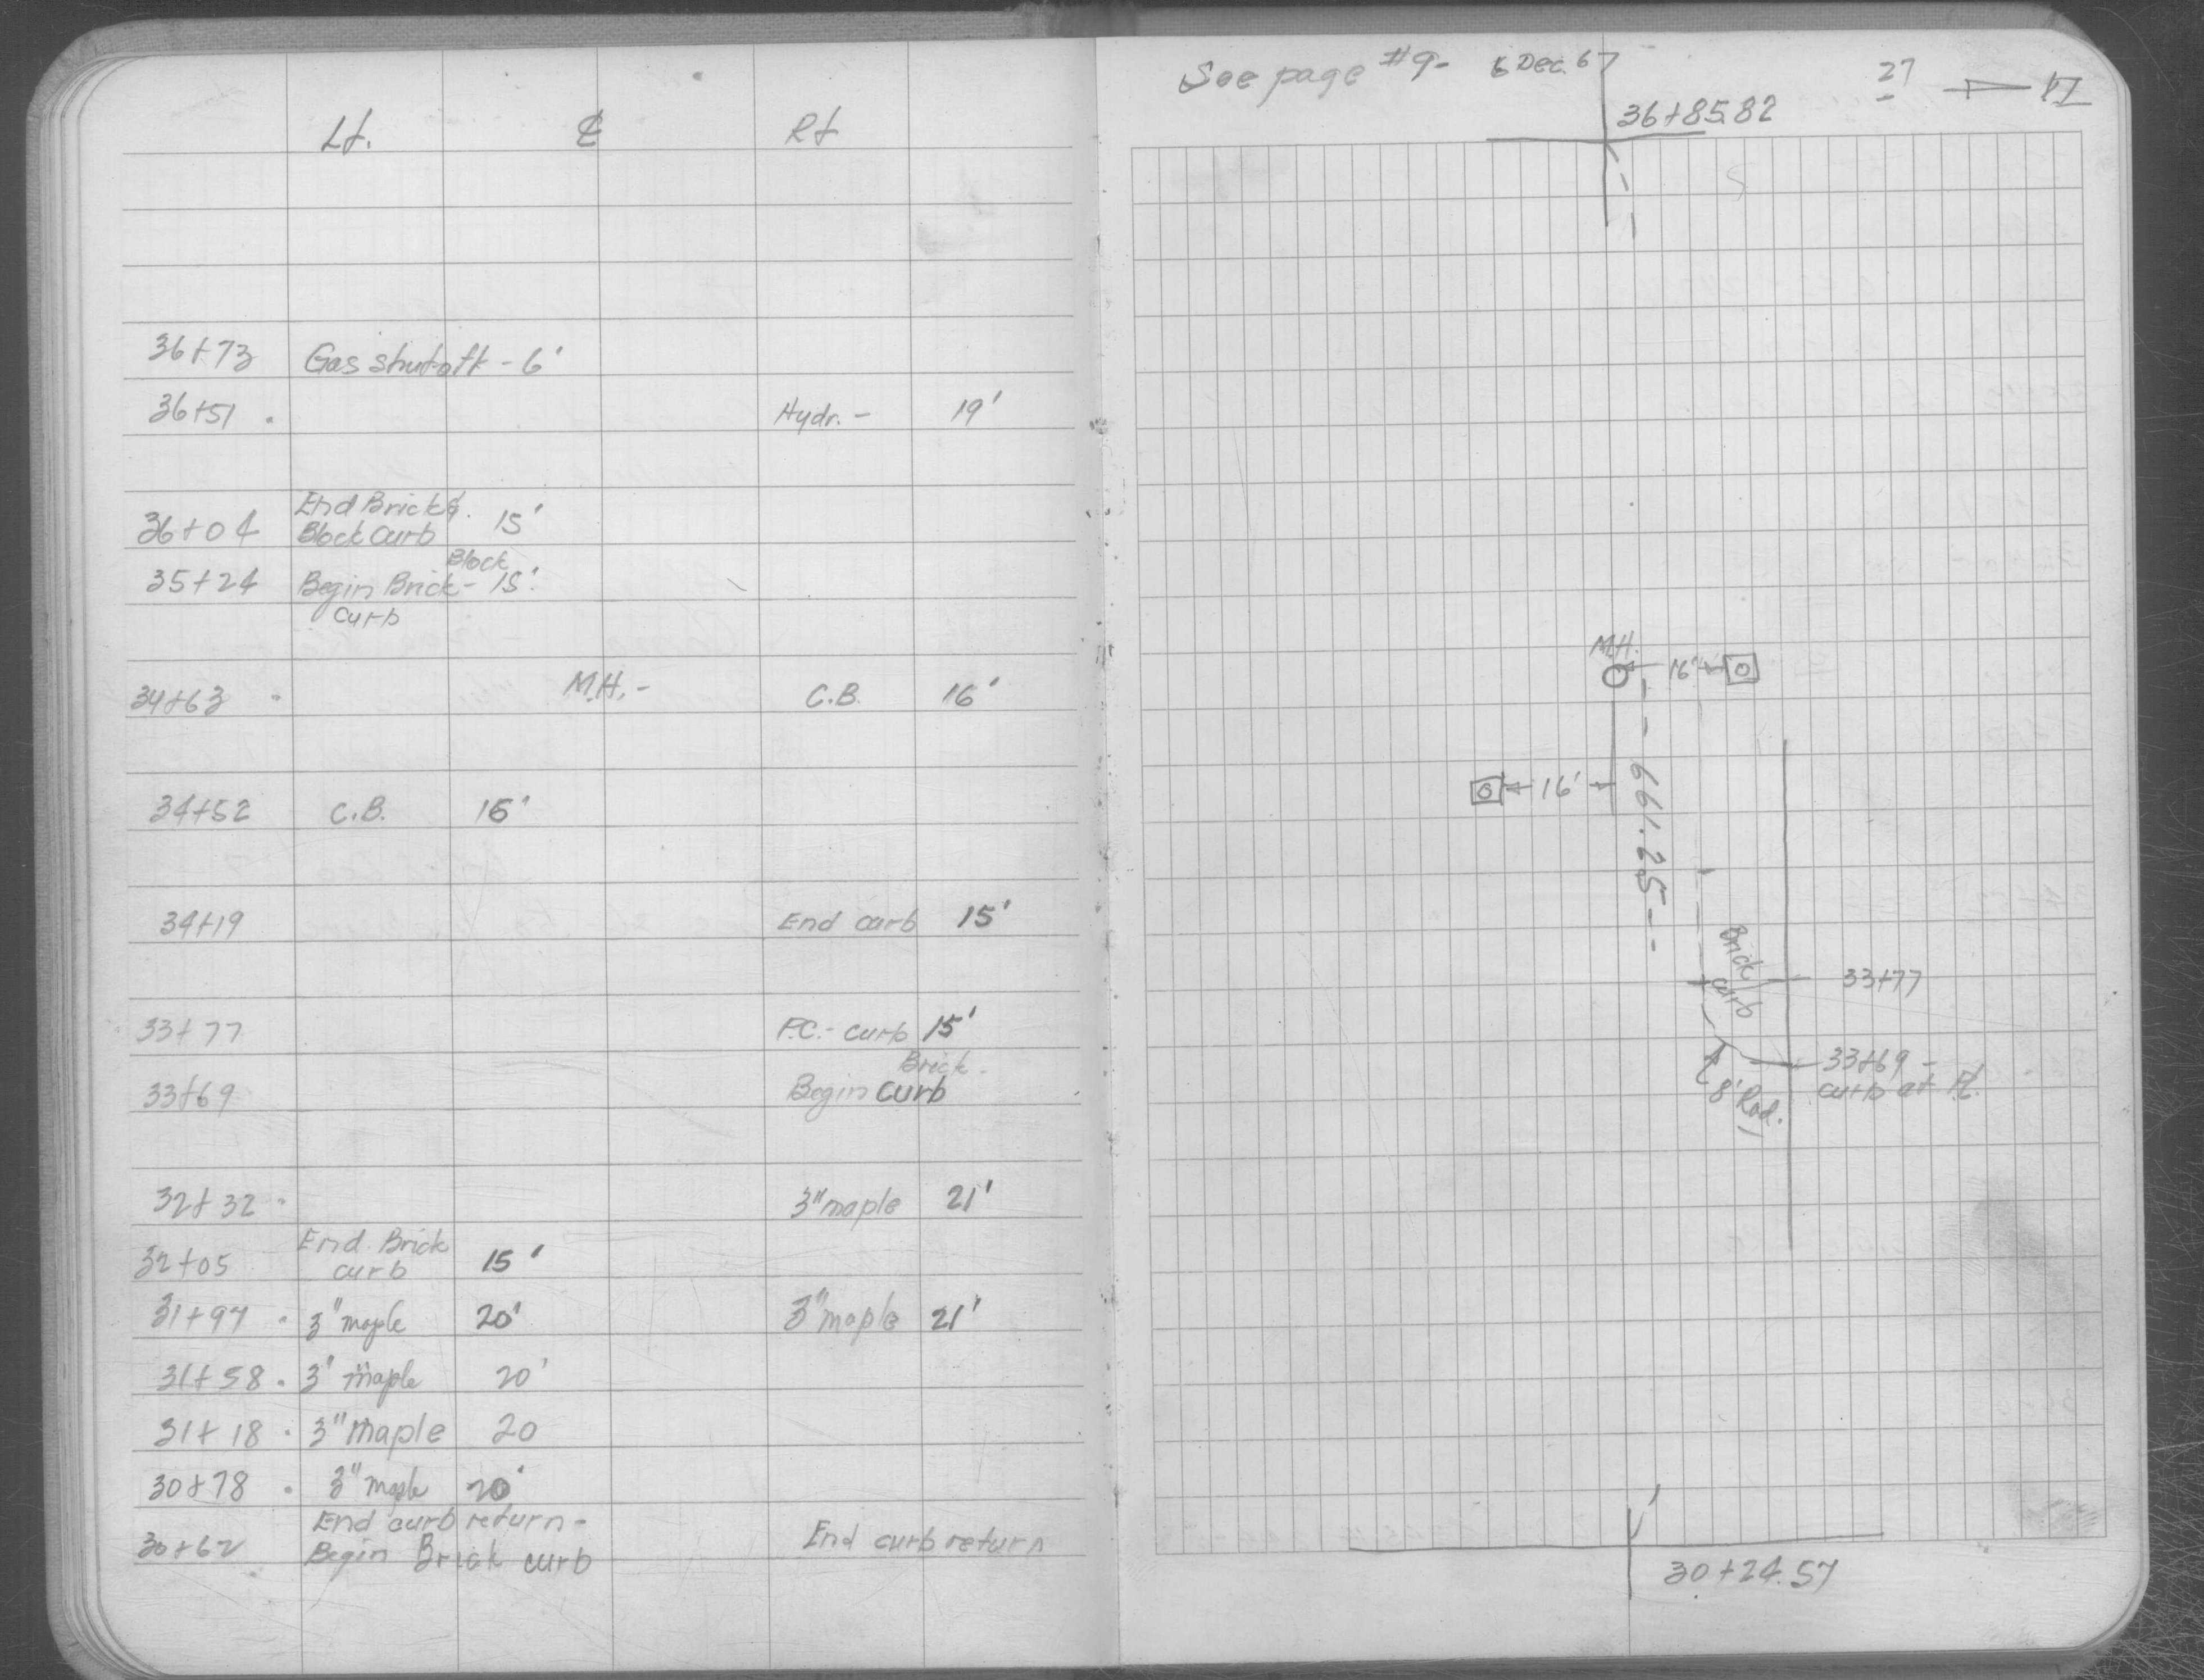 Lt. ℄ Rt
36+73 Gas shutoff - 6'
36+51 Hydr. - 19'
End Brick &
36+04 Block curb 15'
Block
35+24 Begin Brick - 15'
curb
34+63 M.H. - C.B. 16'
34+52 C.B. 16'
34+19 End curb 15'
33+77 P.C. - curb 15'
Brick
33+69 Begin curb
32+32 3" maple 21'
End Brick
32+05 curb 15'
31+97 3" maple 20' 3" maple 21'
31+58 3" maple 20'
31+18 3" maple 20
30+78 3" maple 20'
End curb return -
30+62 Begin Brick curb End curb return
See page #9- 6 Dec. 67
27
36+85.82
M.H.
16'
16'
661.25
Brick
curb
33+77
33+69 -
curb at PL
8' Rad.
30+24.57